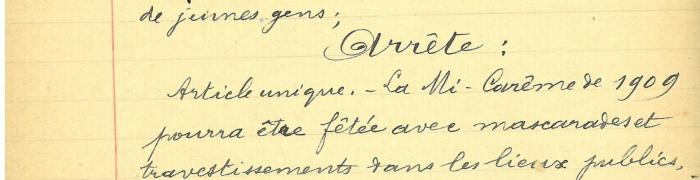 de jeunes gens;
Arrête :
Article unique. - La Mi-Carême de 1909
pourra être fêtée avec mascarades et
travestissements dans les lieux publics,